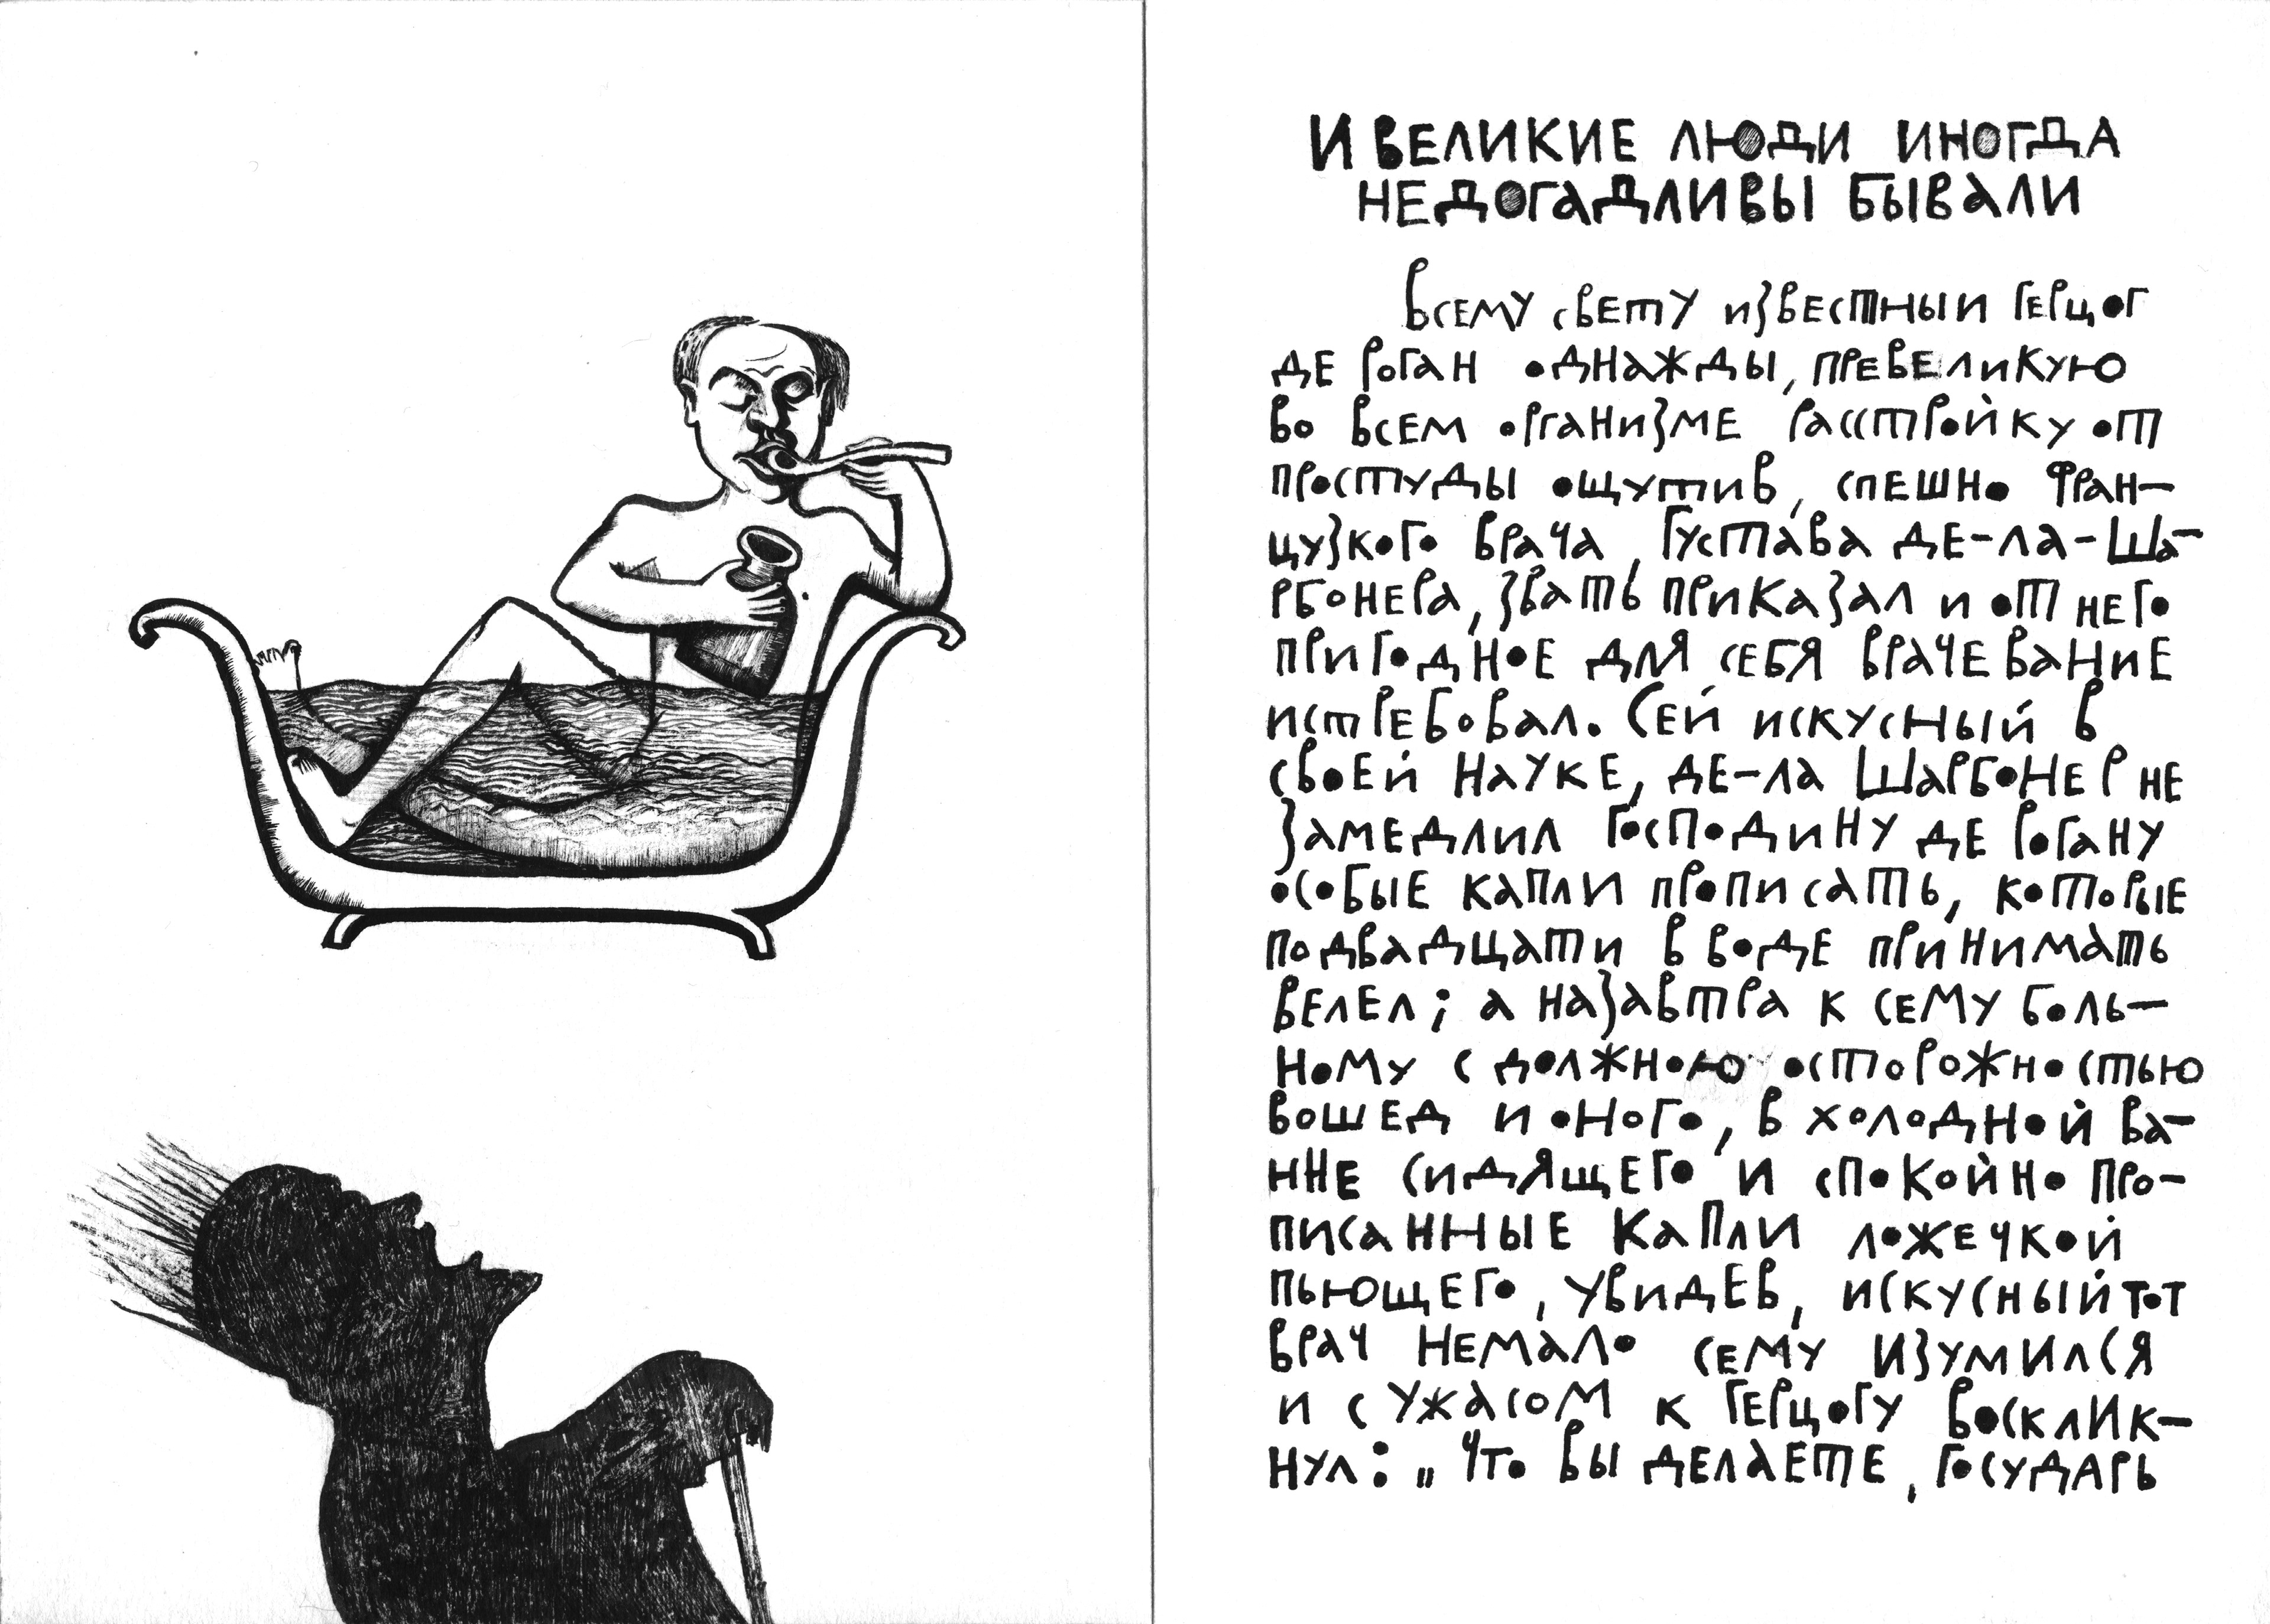 И ВЕЛИКИЕ ЛЮДИ ИНОГДА
НЕДОГАДЛИВЫ БЫВАЛИ
Всему свету известныи герцог
де Роган однажды, превеликую
во всем организме расстройку от
простуды ощутив, спешно фран-
цузкого врача, Густава де-ла-Ша-
рбонера, звать приказал и от него
пригодное для себя врачевание
истребовал. Сей искусный в
своей науке, де-ла Шарбонер не
замедлил господину де Рогану
особые капли прописать, которые
по двадцати в воде принимать
велел; а назавтра к сему боль-
ному с должною осторожностью
вошед и оного, в холодной ва-
нне сидящего и спокойно про-
писанные капли ложечкой
пьющего, увидев, искусный тот
врач немало сему изумился
и с ужасом к герцогу восклик-
нул: „Что вы делаете, государь